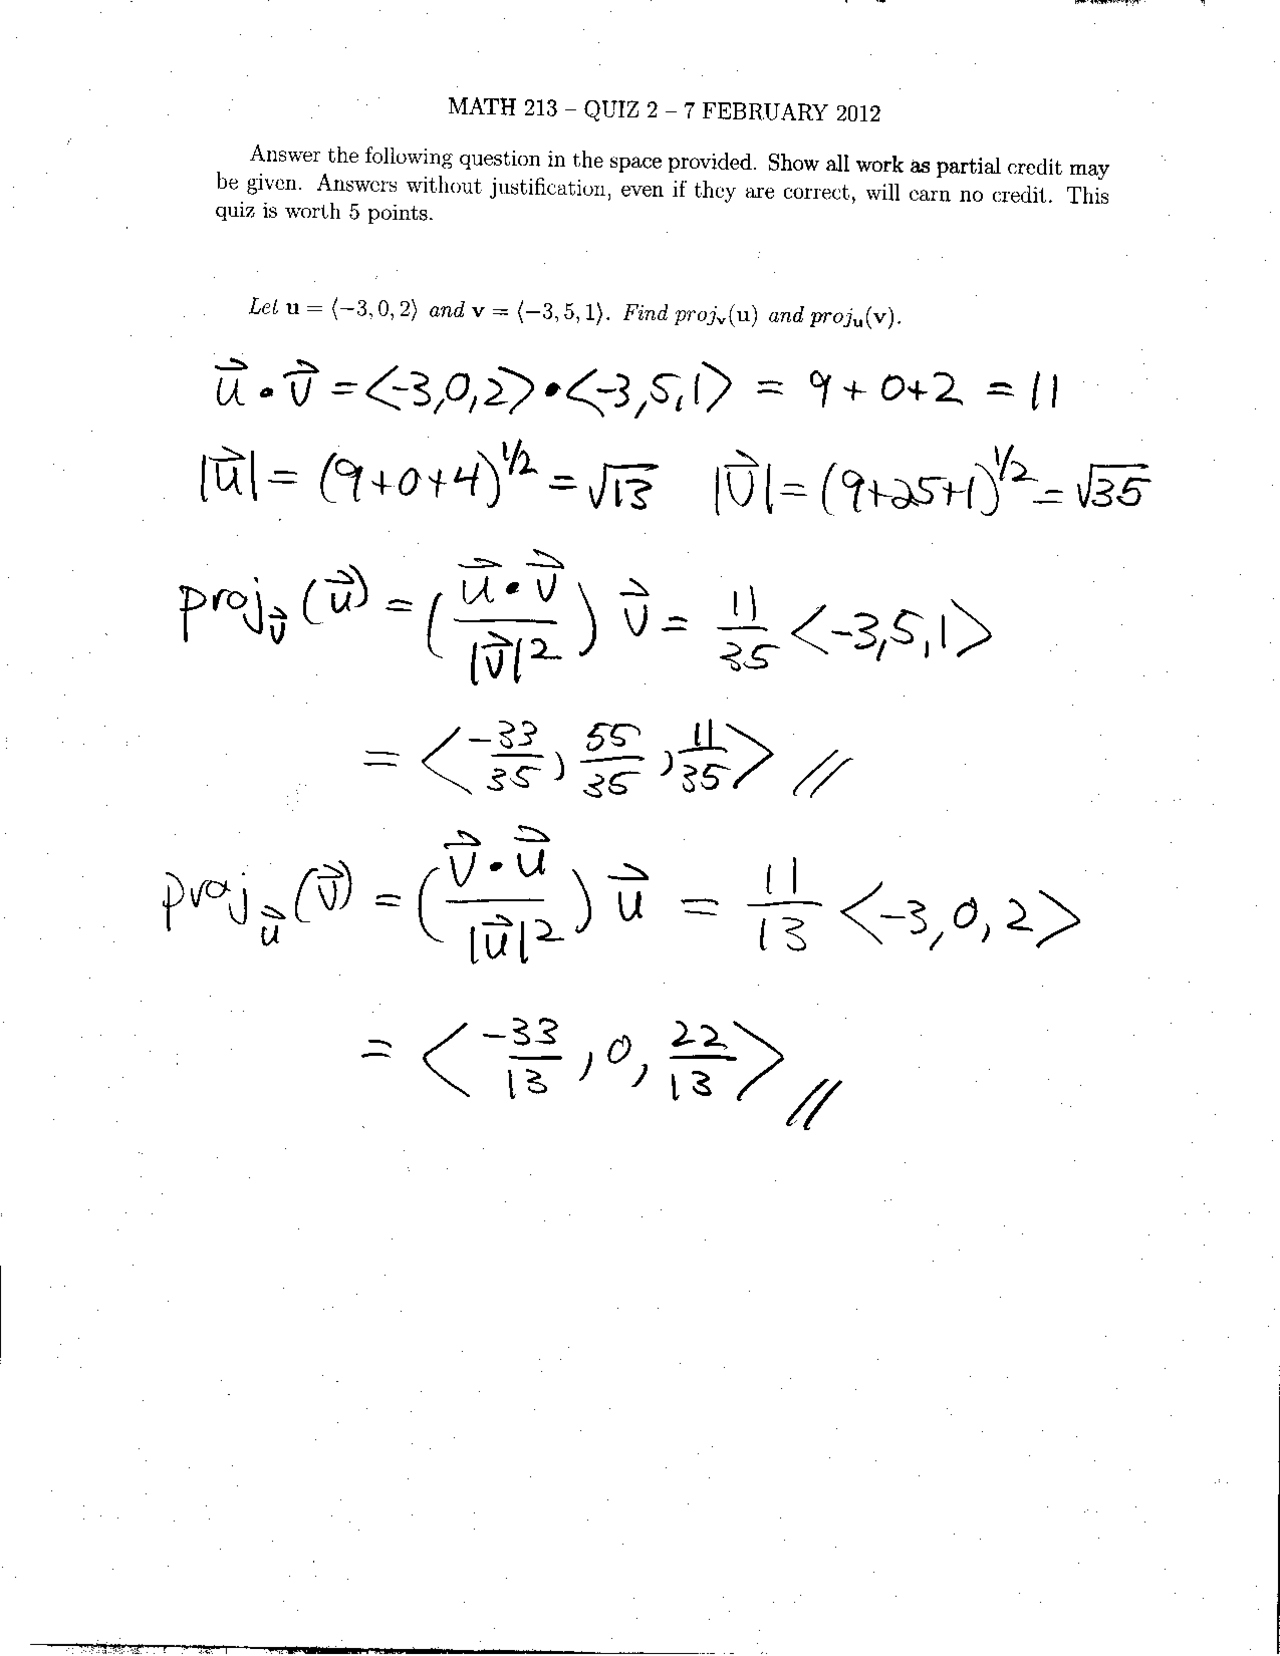 MATH 213 – QUIZ 2 – 7 FEBRUARY 2012
Answer the following question in the space provided. Show all work as partial credit may
be given. Answers without justification, even if they are correct, will earn no credit. This
quiz is worth 5 points.
Let u = ⟨−3, 0, 2⟩ and v = ⟨−3, 5, 1⟩. Find proj_v(u) and proj_u(v).
u⃗ • v⃗ = <-3,0,2> • <-3,5,1> = 9 + 0 + 2 = 11
|u⃗| = (9+0+4)^1/2 = √13 |v⃗| = (9+25+1)^1/2 = √35
proj_v⃗ (u⃗) = (u⃗ • v⃗ / |v⃗|^2) v⃗ = 11/35 <-3,5,1>
= <-33/35, 55/35, 11/35> //
proj_u⃗ (v⃗) = (v⃗ • u⃗ / |u⃗|^2) u⃗ = 11/13 <-3,0,2>
= <-33/13, 0, 22/13> //